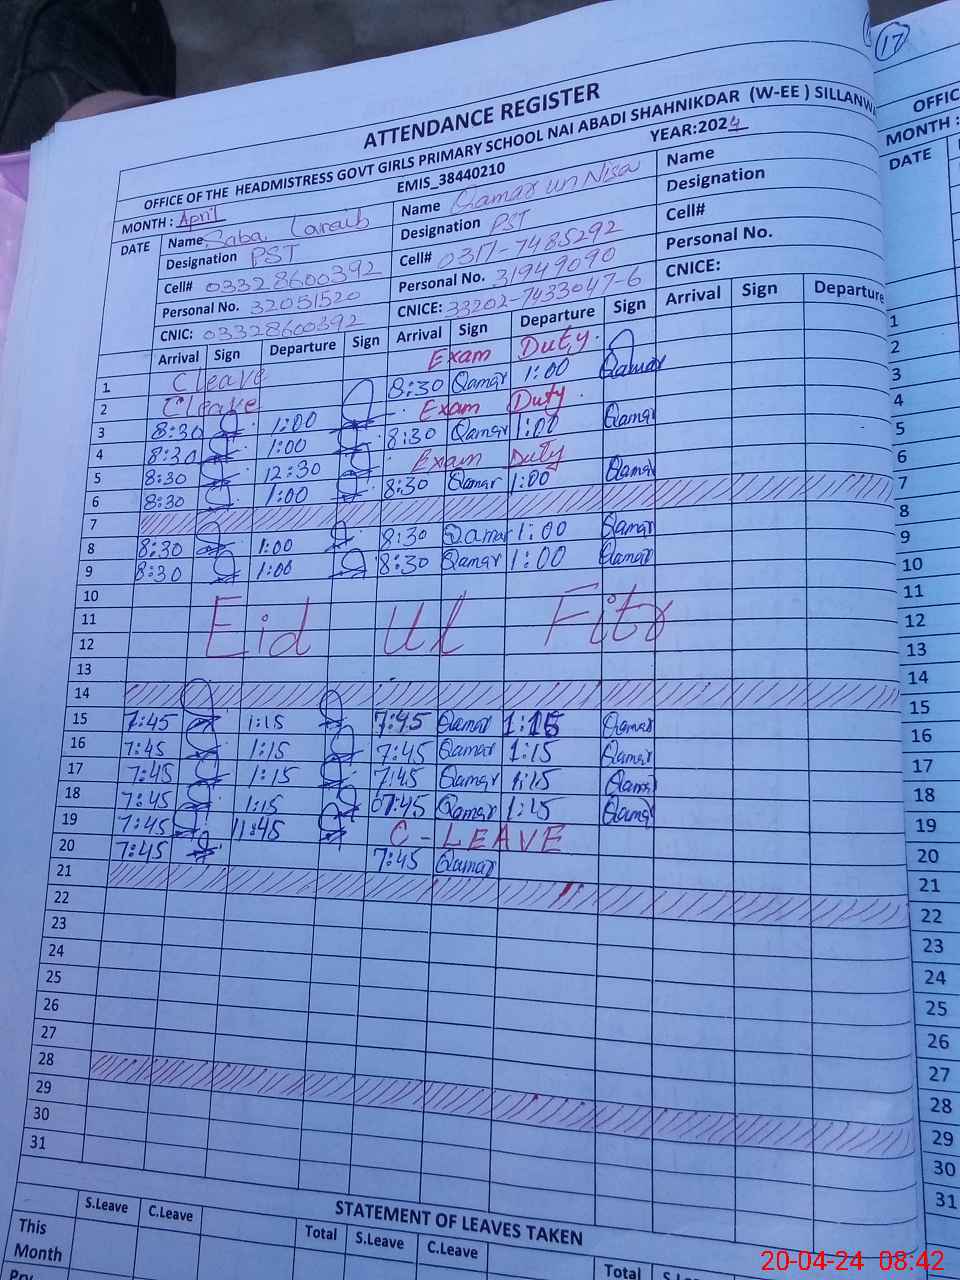 17
ATTENDANCE REGISTER
OFFICE OF THE HEADMISTRESS GOVT GIRLS PRIMARY SCHOOL NAI ABADI SHAHNIKDAR (W-EE ) SILLANW
EMIS_38440210
MONTH : April YEAR:2024
DATE
Name Saba Laraib Name Qamar un Nisa Name
Designation PST Designation PST Designation
Cell# 03328600392 Cell# 0317-7485292 Cell#
Personal No. 32051520 Personal No. 31949090 Personal No.
CNIC: 03328600392 CNICE: 33202-7433047-6 CNICE:
Arrival Sign Departure Sign Arrival Sign Departure Sign Arrival Sign Departure
1 C leave Exam Duty.
2 C leave 8:30 Qamar 1:00 Qamar
3 8:30 1:00 Exam Duty
4 8:30 1:00 8:30 Qamar 1:00 Qamar
5 8:30 12:30 Exam Duty
6 8:30 1:00 8:30 Qamar 1:00 Qamar
7
8 8:30 1:00 8:30 Qamar 1:00 Qamar
9 8:30 1:00 8:30 Qamar 1:00 Qamar
10
11 Eid Ul Fitr
12
13
14
15 7:45 1:15 7:45 Qamar 1:15 Qamar
16 7:45 1:15 7:45 Qamar 1:15 Qamar
17 7:45 1:15 7:45 Qamar 1:15 Qamar
18 7:45 1:15 07:45 Qamar 1:15 Qamar
19 7:45 11:45 C-LEAVE
20 7:45 7:45 Qamar
21
22
23
24
25
26
27
28
29
30
31
STATEMENT OF LEAVES TAKEN
S.Leave C.Leave Total S.Leave C.Leave Total
This
Month
OFFIC
MONTH :
DATE
1
2
3
4
5
6
7
8
9
10
11
12
13
14
15
16
17
18
19
20
21
22
23
24
25
26
27
28
29
30
31
20-04-24 08:42